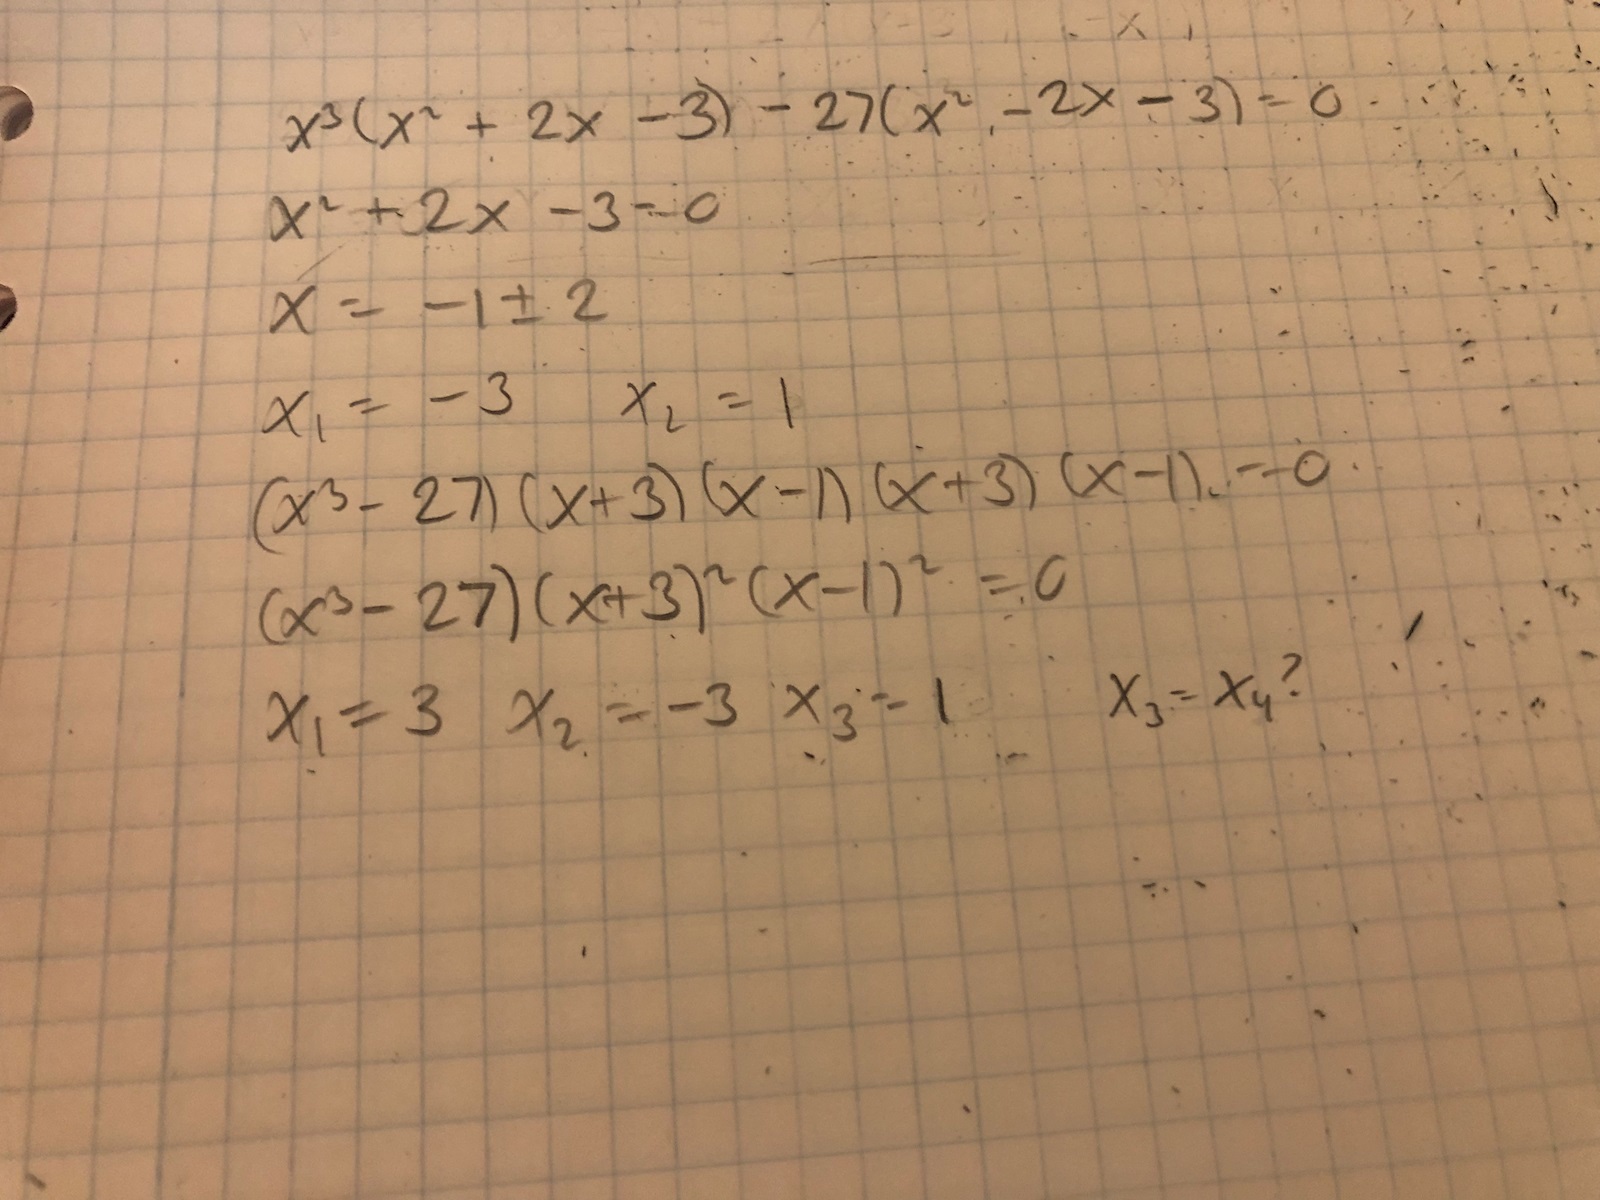 x³(x² + 2x - 3) - 27(x² - 2x - 3) = 0
x² + 2x - 3 = 0
x = -1 ± 2
x₁ = -3 x₂ = 1
(x³ - 27)(x+3)(x-1)(x+3)(x-1) = 0
(x³ - 27)(x+3)²(x-1)² = 0
x₁ = 3 x₂ = -3 x₃ = 1 x₃ = x₄?